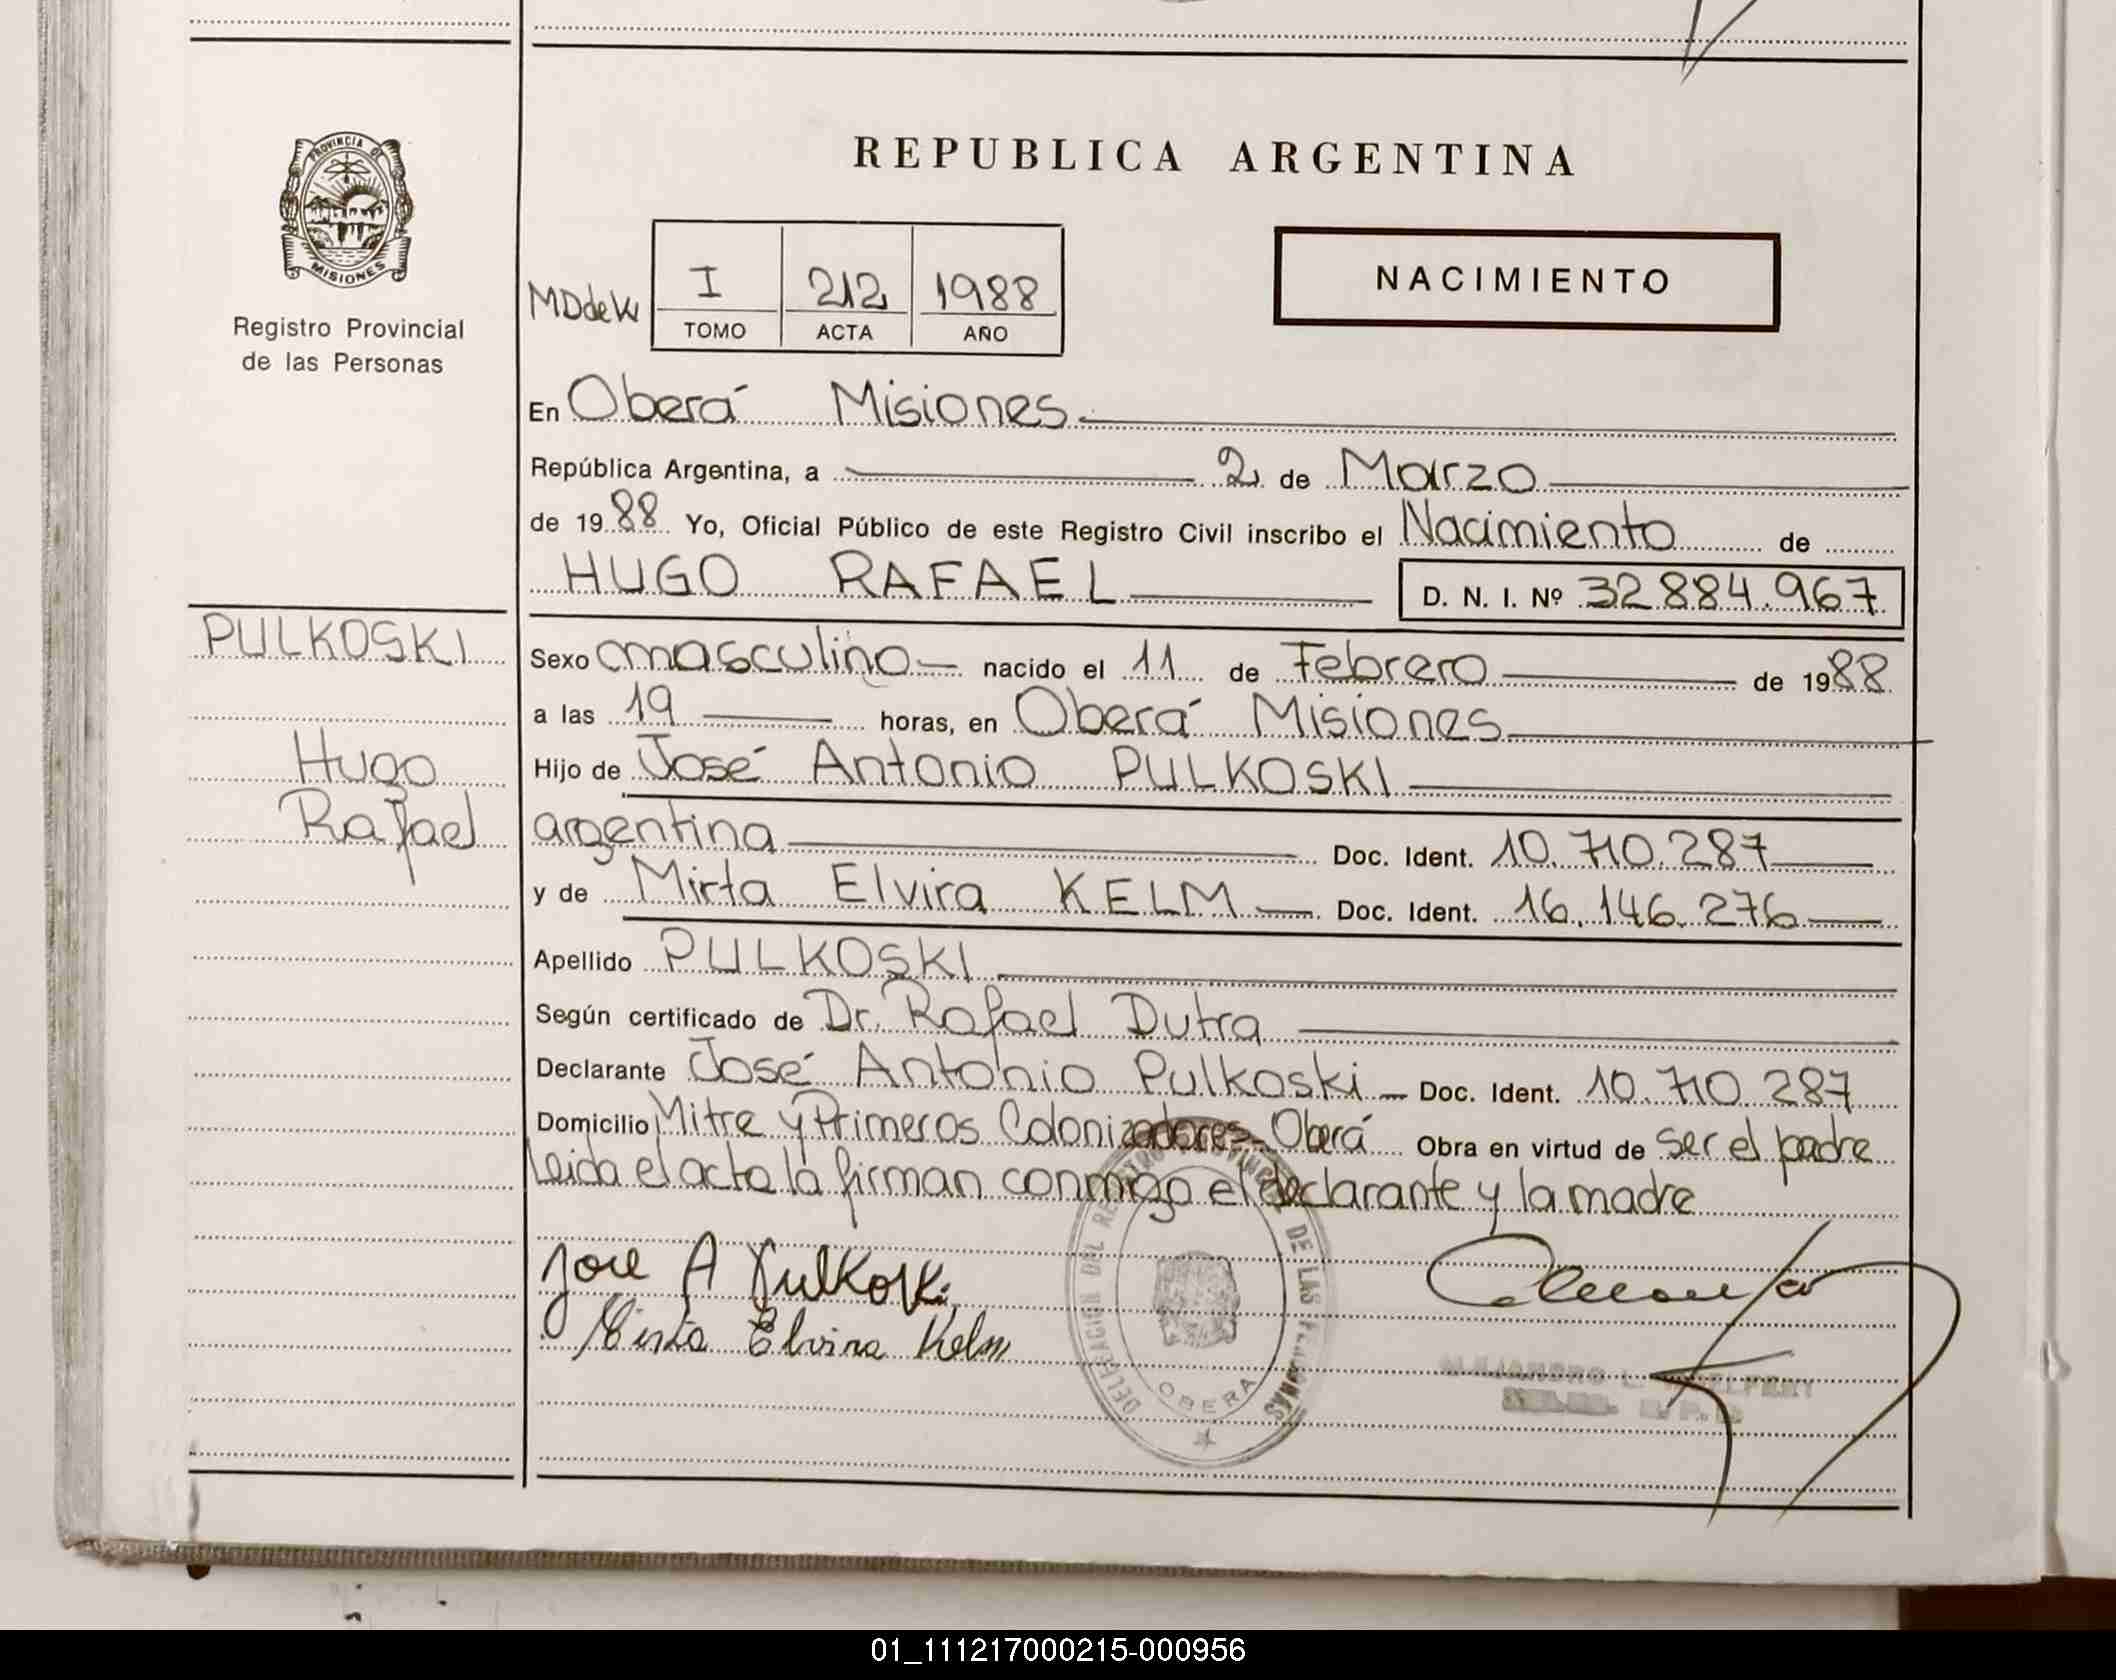 PROVINCIA DE
MISIONES
Registro Provincial
de las Personas
REPUBLICA ARGENTINA
NACIMIENTO
MDdeK
I 212 1988
TOMO ACTA AÑO
En Oberá Misiones
República Argentina, a 2 de Marzo
de 1988 Yo, Oficial Público de este Registro Civil inscribo el Nacimiento de
HUGO RAFAEL D. N. I. Nº 32884.967
PULKOSKI
Hugo
Rafael
Sexo masculino nacido el 11 de Febrero de 1988
a las 19 horas, en Oberá Misiones
Hijo de José Antonio PULKOSKI
argentina Doc. Ident. 10.710.287
y de Mirta Elvira KELM Doc. Ident. 16.146.276
Apellido PULKOSKI
Según certificado de Dr. Rafael Dutra
Declarante José Antonio Pulkoski Doc. Ident. 10.710.287
Domicilio Mitre y Primeros Colonizadores Oberá Obra en virtud de ser el padre
Leida el acta la firman conmigo el declarante y la madre
Jose A Pulkoski
Mirta Elvira Kelm
DELEGACION DEL REGISTRO PROVINCIAL DE LAS PERSONAS
OBERA
ALEJANDRO L.
01_111217000215-000956